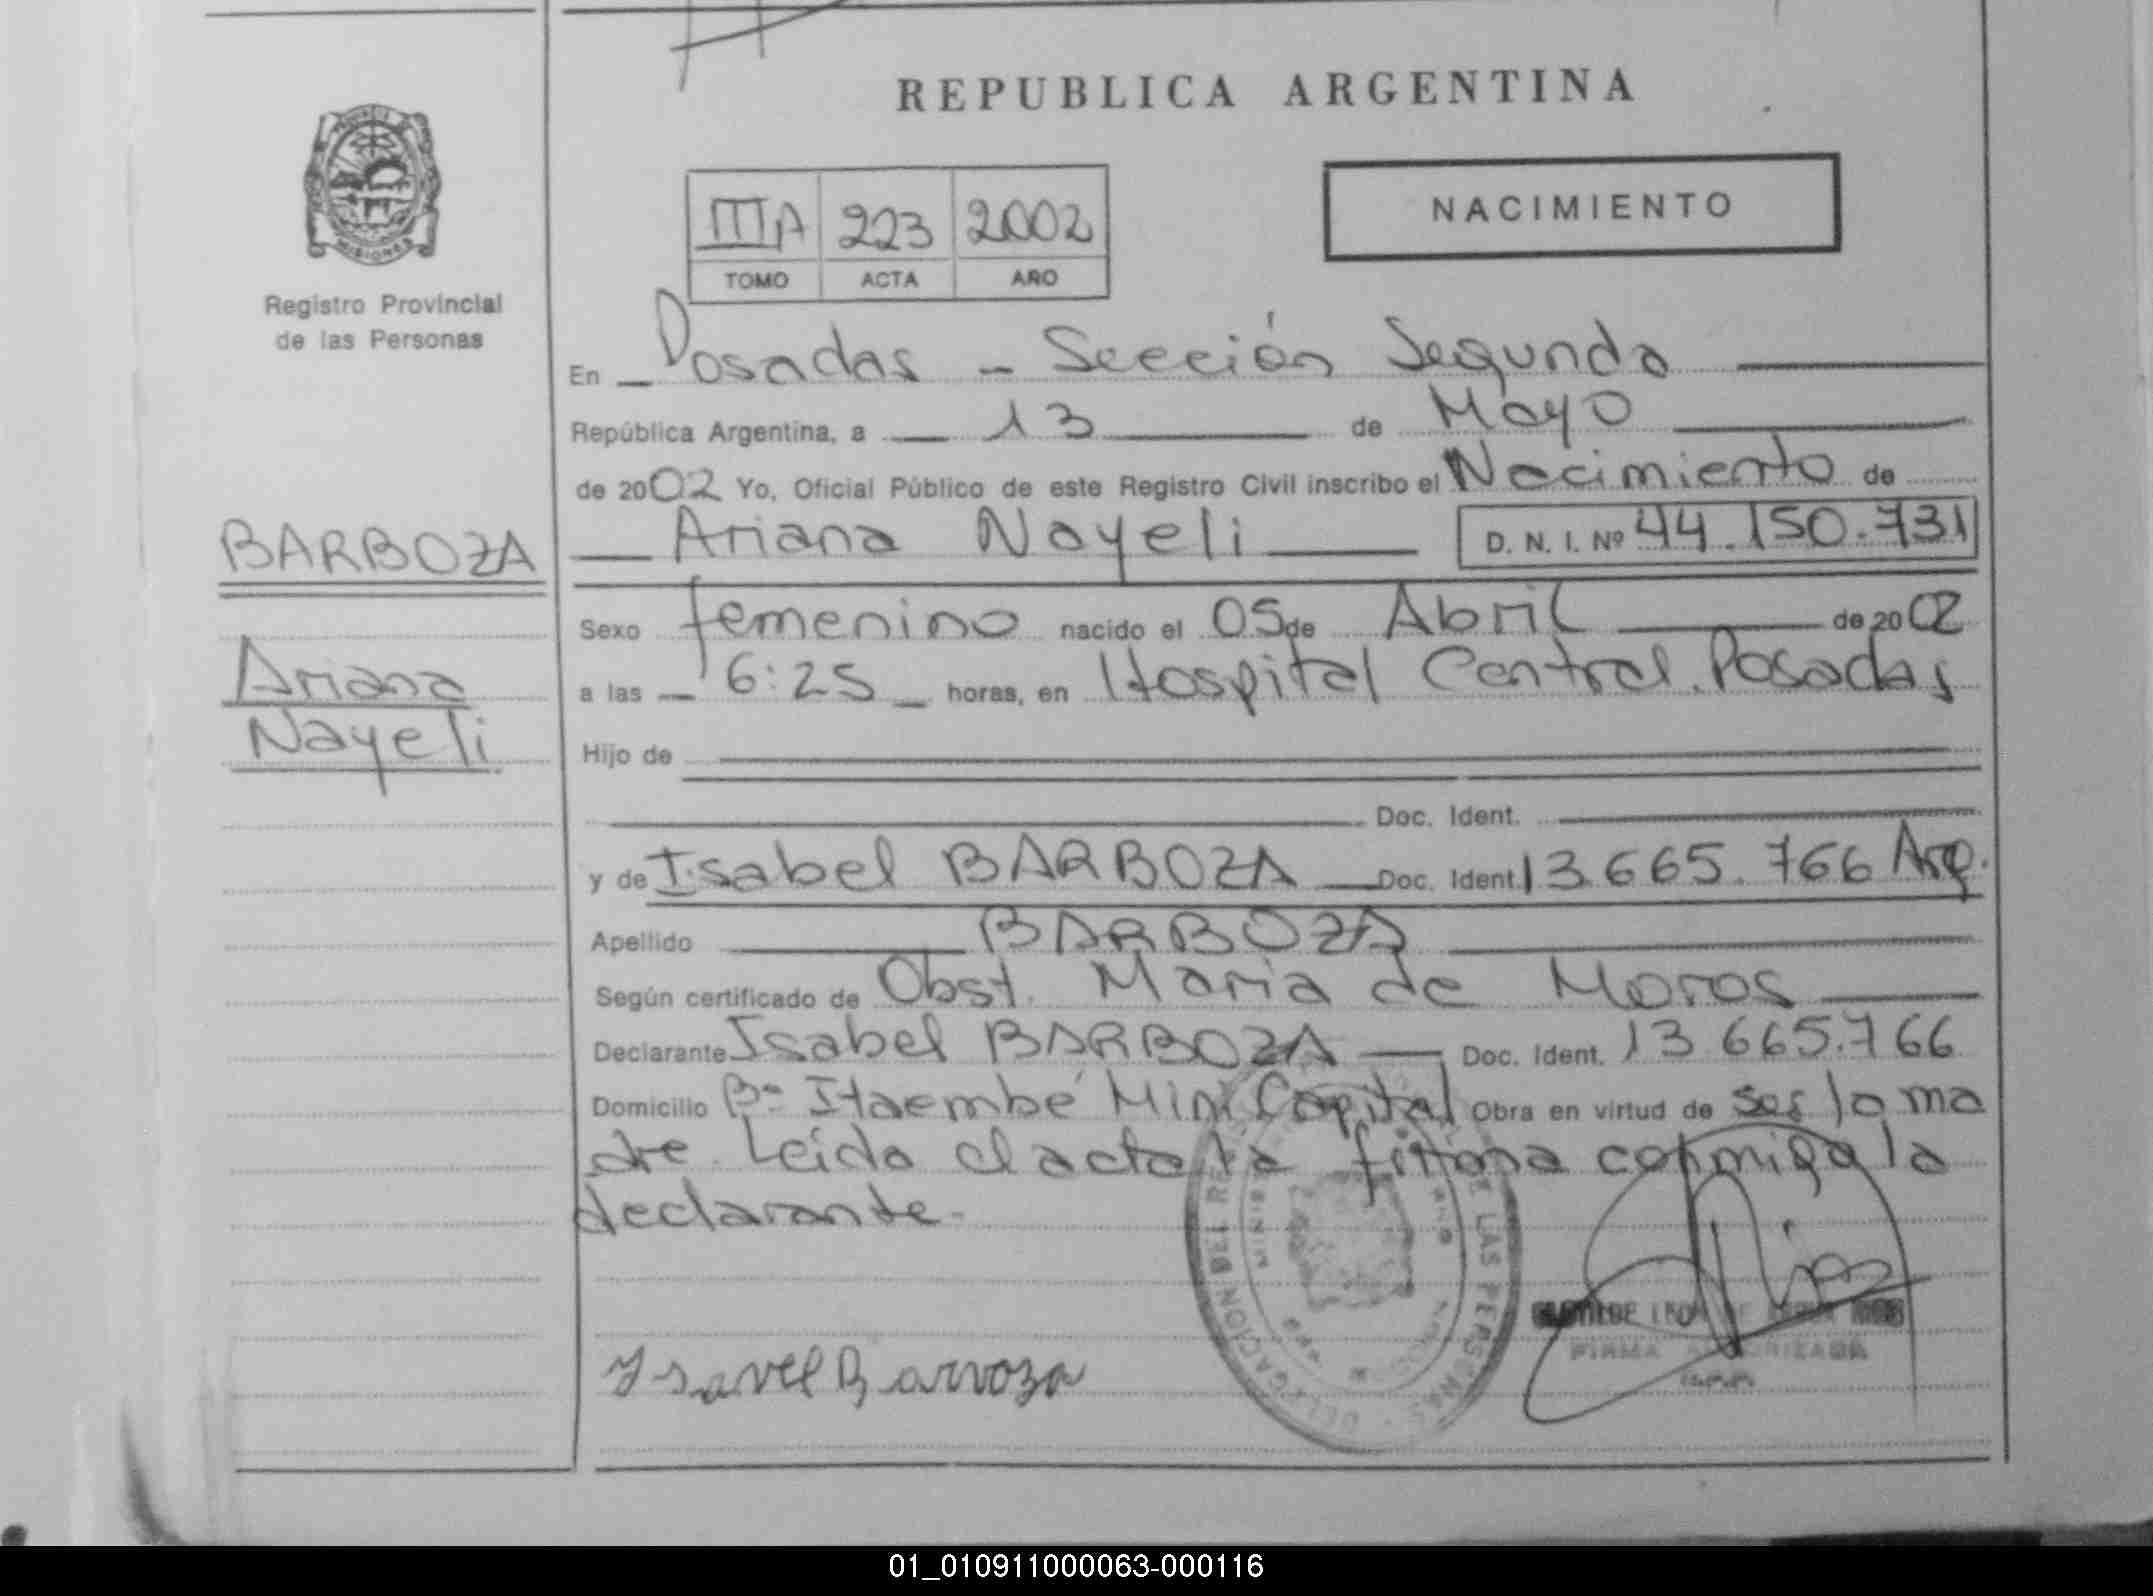 REPUBLICA ARGENTINA
NACIMIENTO
IIIA 223 2002
TOMO ACTA AÑO
MISIONES
Registro Provincial
de las Personas
En Posadas - Sección Segunda
República Argentina, a 13 de Mayo
de 2002 Yo, Oficial Público de este Registro Civil inscribo el Nacimiento de
Ariana Nayeli D. N. I. Nº 44.150.731
BARBOZA
Ariana
Nayeli
Sexo femenino nacido el 05 de Abril de 2002
a las 6:25 horas, en Hospital Central. Posadas
Hijo de
Doc. Ident.
y de Isabel BARBOZA Doc. Ident. 13.665.766 Arg.
Apellido BARBOZA
Según certificado de Obst. Maria de Moros
Declarante Isabel BARBOZA Doc. Ident. 13.665.766
Domicilio Bº Itaembé Mini Capital Obra en virtud de ser la ma
dre. Leída el acta la firma conmigo la
declarante.
DELEGACION DEL DE LAS PERSONAS
Ysavel Barroza
FIRMA AUTORIZADA
01_010911000063-000116